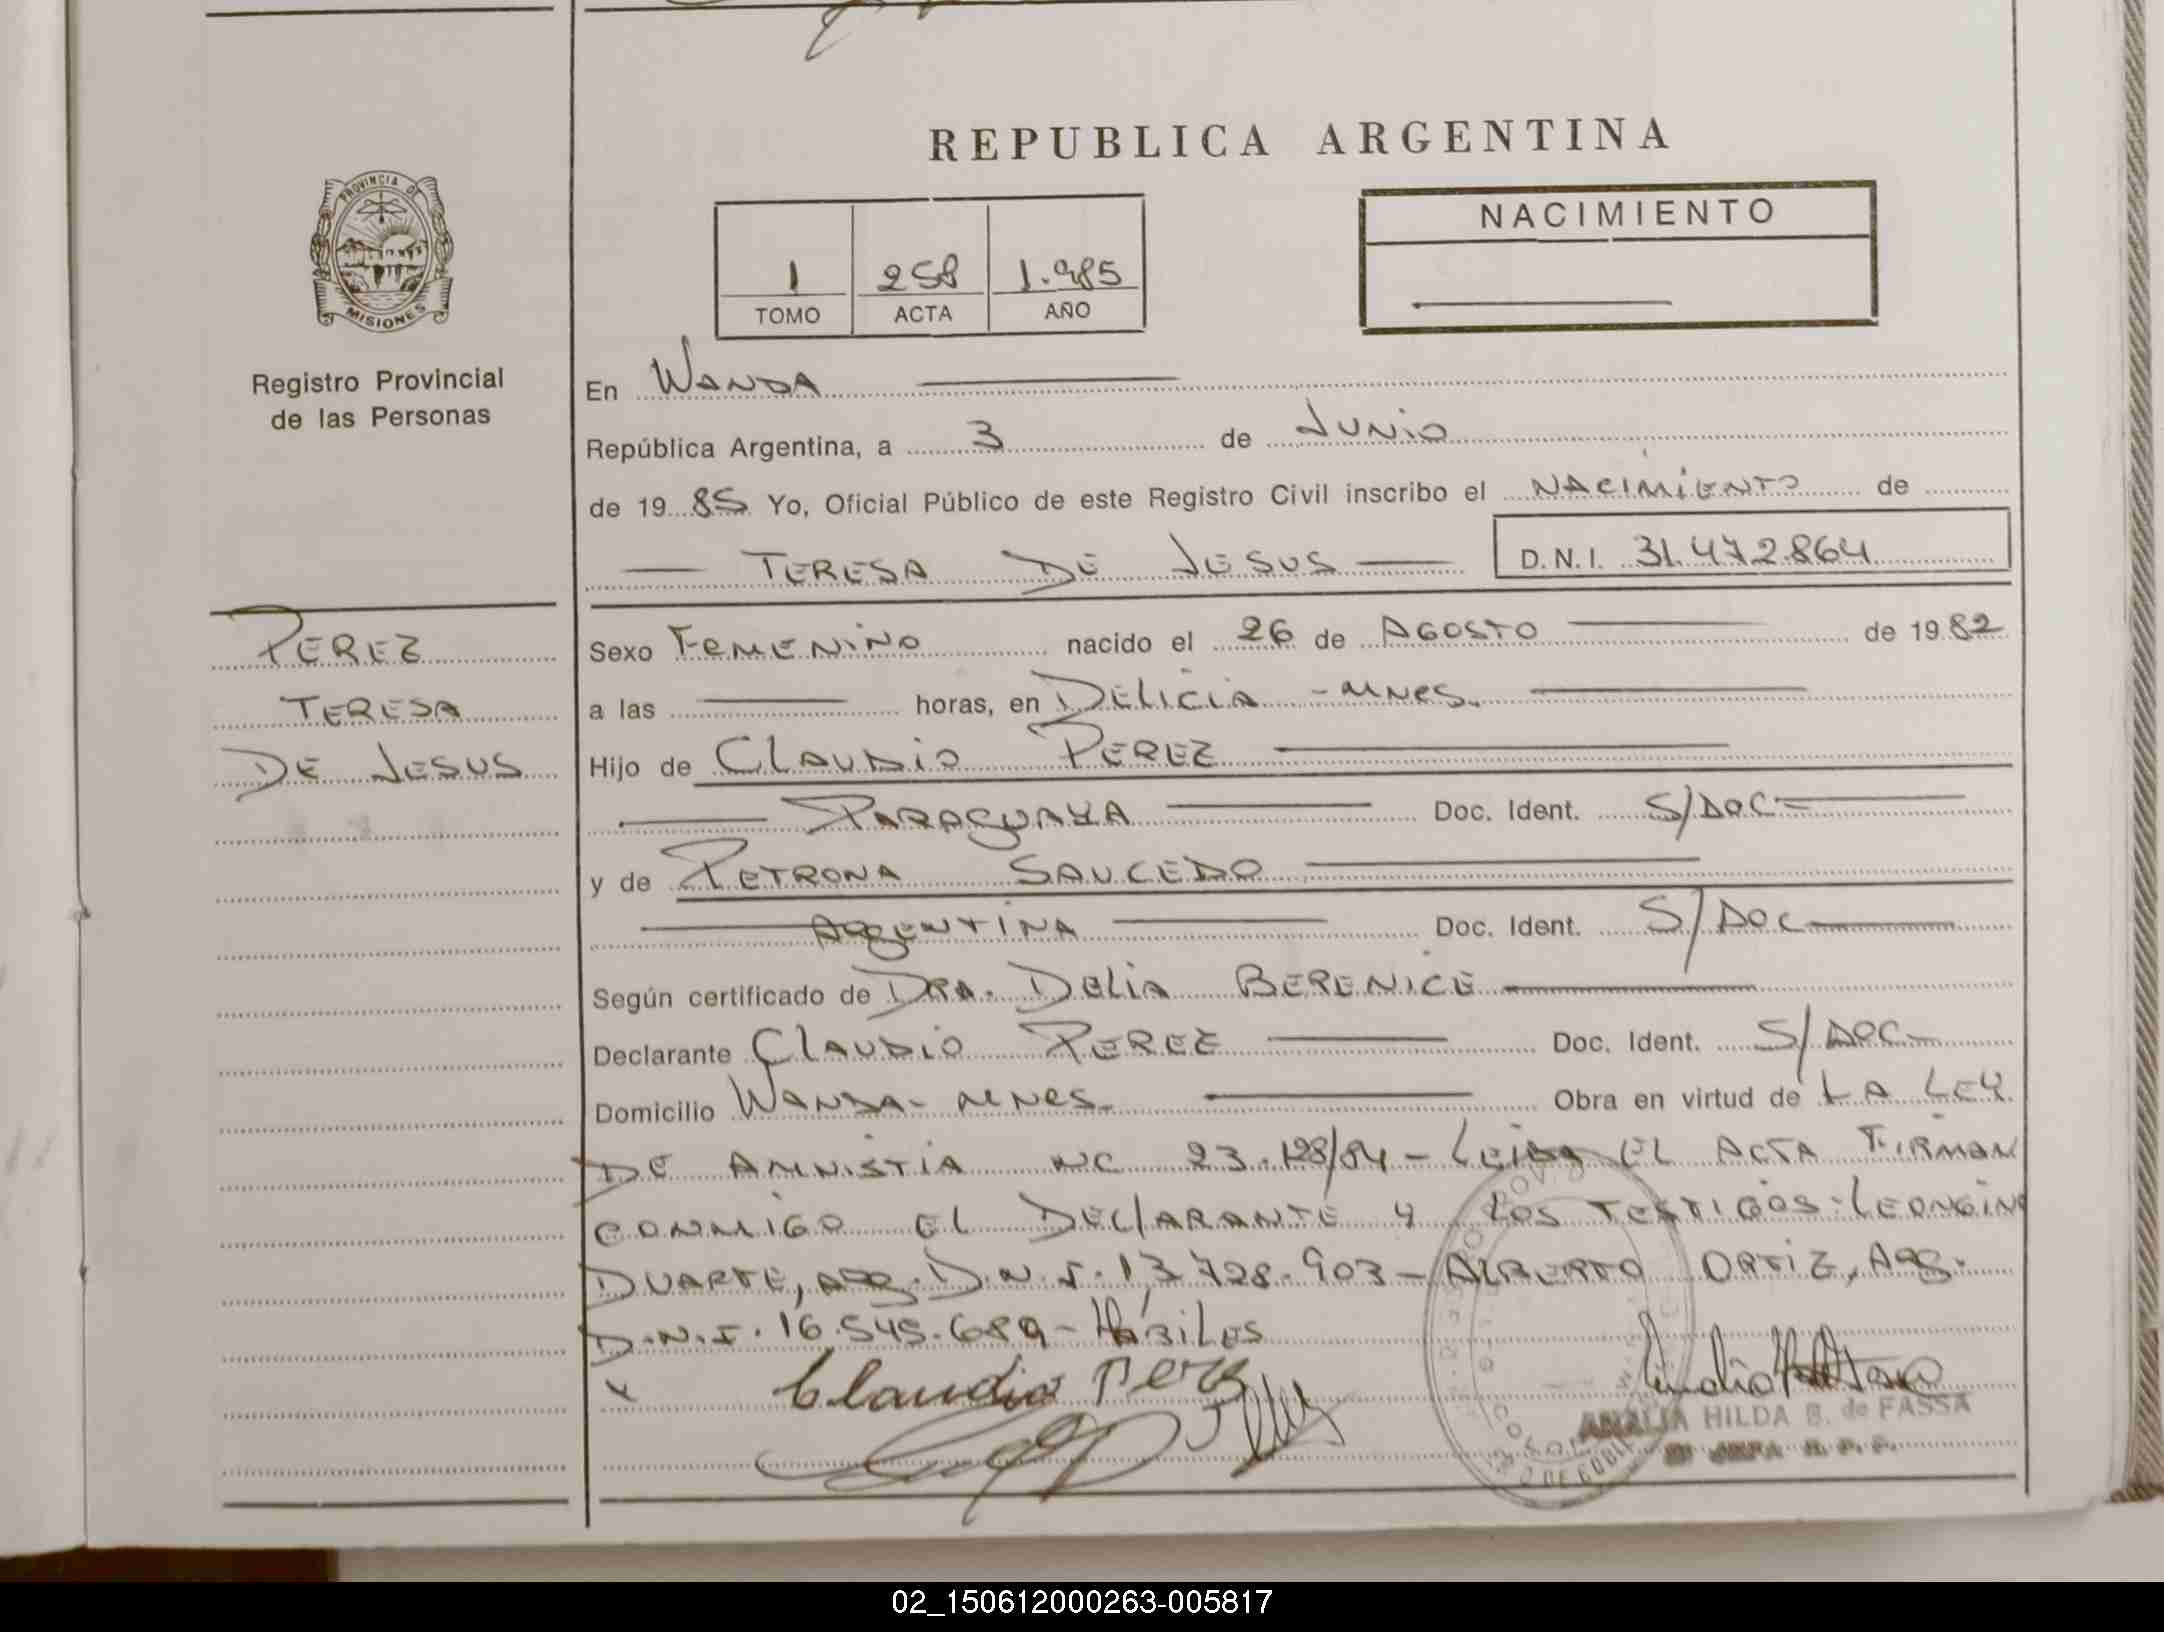 REPUBLICA ARGENTINA
PROVINCIA DE
MISIONES
Registro Provincial
de las Personas
1 258 1.985
TOMO ACTA AÑO
NACIMIENTO
En WANDA
República Argentina, a 3 de JUNIO
de 19 85 Yo, Oficial Público de este Registro Civil inscribo el NACIMIENTO de
TERESA DE JESUS D.N.I. 31.472.864
PEREZ
TERESA
DE JESUS
Sexo FEMENINO nacido el 26 de AGOSTO de 19 82
a las horas, en DELICIA - MNES.
Hijo de CLAUDIO PEREZ
PARAGUAYA Doc. Ident. S/DOC-
y de PETRONA SAUCEDO
ARGENTINA Doc. Ident. S/DOC
Según certificado de DRA. DELIA BERENICE
Declarante CLAUDIO PEREZ Doc. Ident. S/DOC-
Domicilio WANDA - MNES. Obra en virtud de LA LEY
DE AMNISTIA Nº 23.128/84 - LEIDA EL ACTA FIRMAN
CONMIGO EL DECLARANTE Y LOS TESTIGOS: LEONGINO
DUARTE, ARG. D.N.I. 13.728.903 - ALBERTO ORTIZ, ARG.
D.N.I. 16.545.689 - HÁBILES
x Claudio Perez
ANALIA HILDA B. de FASSA
02_150612000263-005817